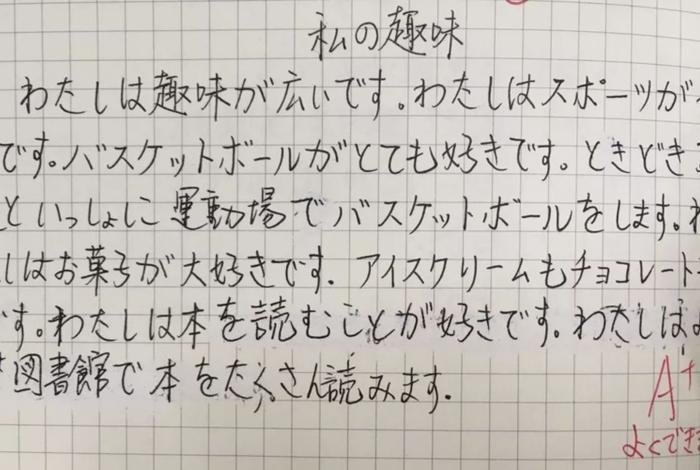 私の趣味
わたしは趣味が広いです。わたしはスポーツが
です。バスケットボールがとても好きです。ときどき
といっしょに運動場でバスケットボールをします。わ
しはお菓子が大好きです.アイスクリームもチョコレート
す。わたしは本を読むことが好きです。わたしはよ
図書館で本をたくさん読みます.
A+
よくでき